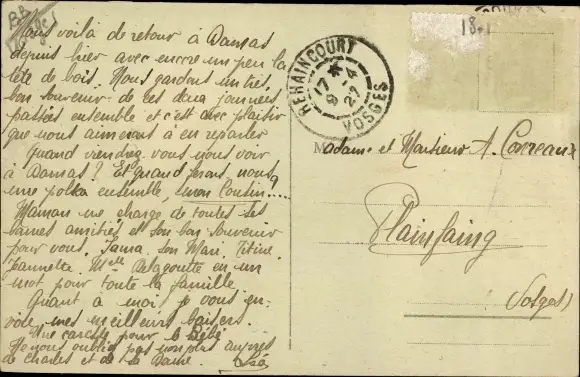 Nous voilà de retour à Damas
depuis hier avec encore un peu la
tête de bois. Nous gardons un très
bon souvenir de ces deux journées
passées ensemble et c'est avec plaisir
que nous aimerons à en reparler
Quand viendrez vous nous voir
à Damas ? Et quand ferons nous
une polka ensemble, mon Cousin ?...
Maman me charge de toutes ses
bonnes amitiés et son bon souvenir
pour vous, son Mari, Titine,
Jeannette, Melle Delagoutte en un
mot pour toute la famille
Quant à moi je vous en-
voie mes meilleurs baisers.
Une caresse pour le Bébé
Ne nous oubliez pas non plus auprès
de Charles et de sa Dame.
REHAINCOURT
17 * 
9 - 4
27
VOSGES
18.
Madame et Monsieur A. Correaux
Plainfaing
Vosges